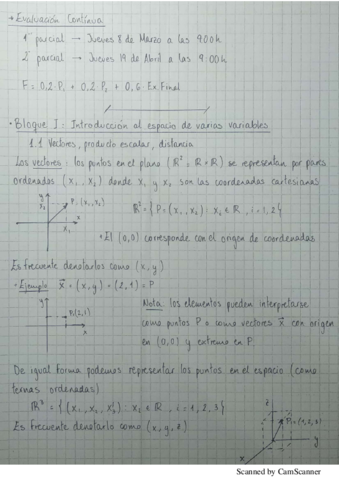 → Evaluación Continua:
1er parcial → Jueves 8 de Marzo a las 9:00h
2º parcial → Jueves 19 de Abril a las 9:00h
F = 0,2·P₁ + 0,2·P₂ + 0,6·Ex.Final
· Bloque I: Introducción al espacio de varias variables
1.1 Vectores, producto escalar, distancia
Los vectores: los puntos en el plano (ℝ² = ℝ×ℝ) se representan por pares
ordenados (x₁, x₂) donde x₁ y x₂ son las coordenadas cartesianas
x₂
P = (x₁, x₂)
x₁
ℝ² = { P = (x₁, x₂) : xᵢ ∈ ℝ, i = 1, 2 }
· El (0,0) corresponde con el origen de coordenadas
Es frecuente denotarlos como (x, y)
· Ejemplo x⃗ = (x, y) = (2, 1) = P
y
P(2,1)
x
Nota: los elementos pueden interpretarse
como puntos P o como vectores x⃗ con origen
en (0,0) y extremo en P.
De igual forma podemos representar los puntos en el espacio (como
ternas ordenadas)
ℝ³ = { (x₁, x₂, x₃) : xᵢ ∈ ℝ, i = 1, 2, 3 }
Es frecuente denotarlo como (x, y, z)
z
P = (1, 2, 3)
y
x
Scanned by CamScanner